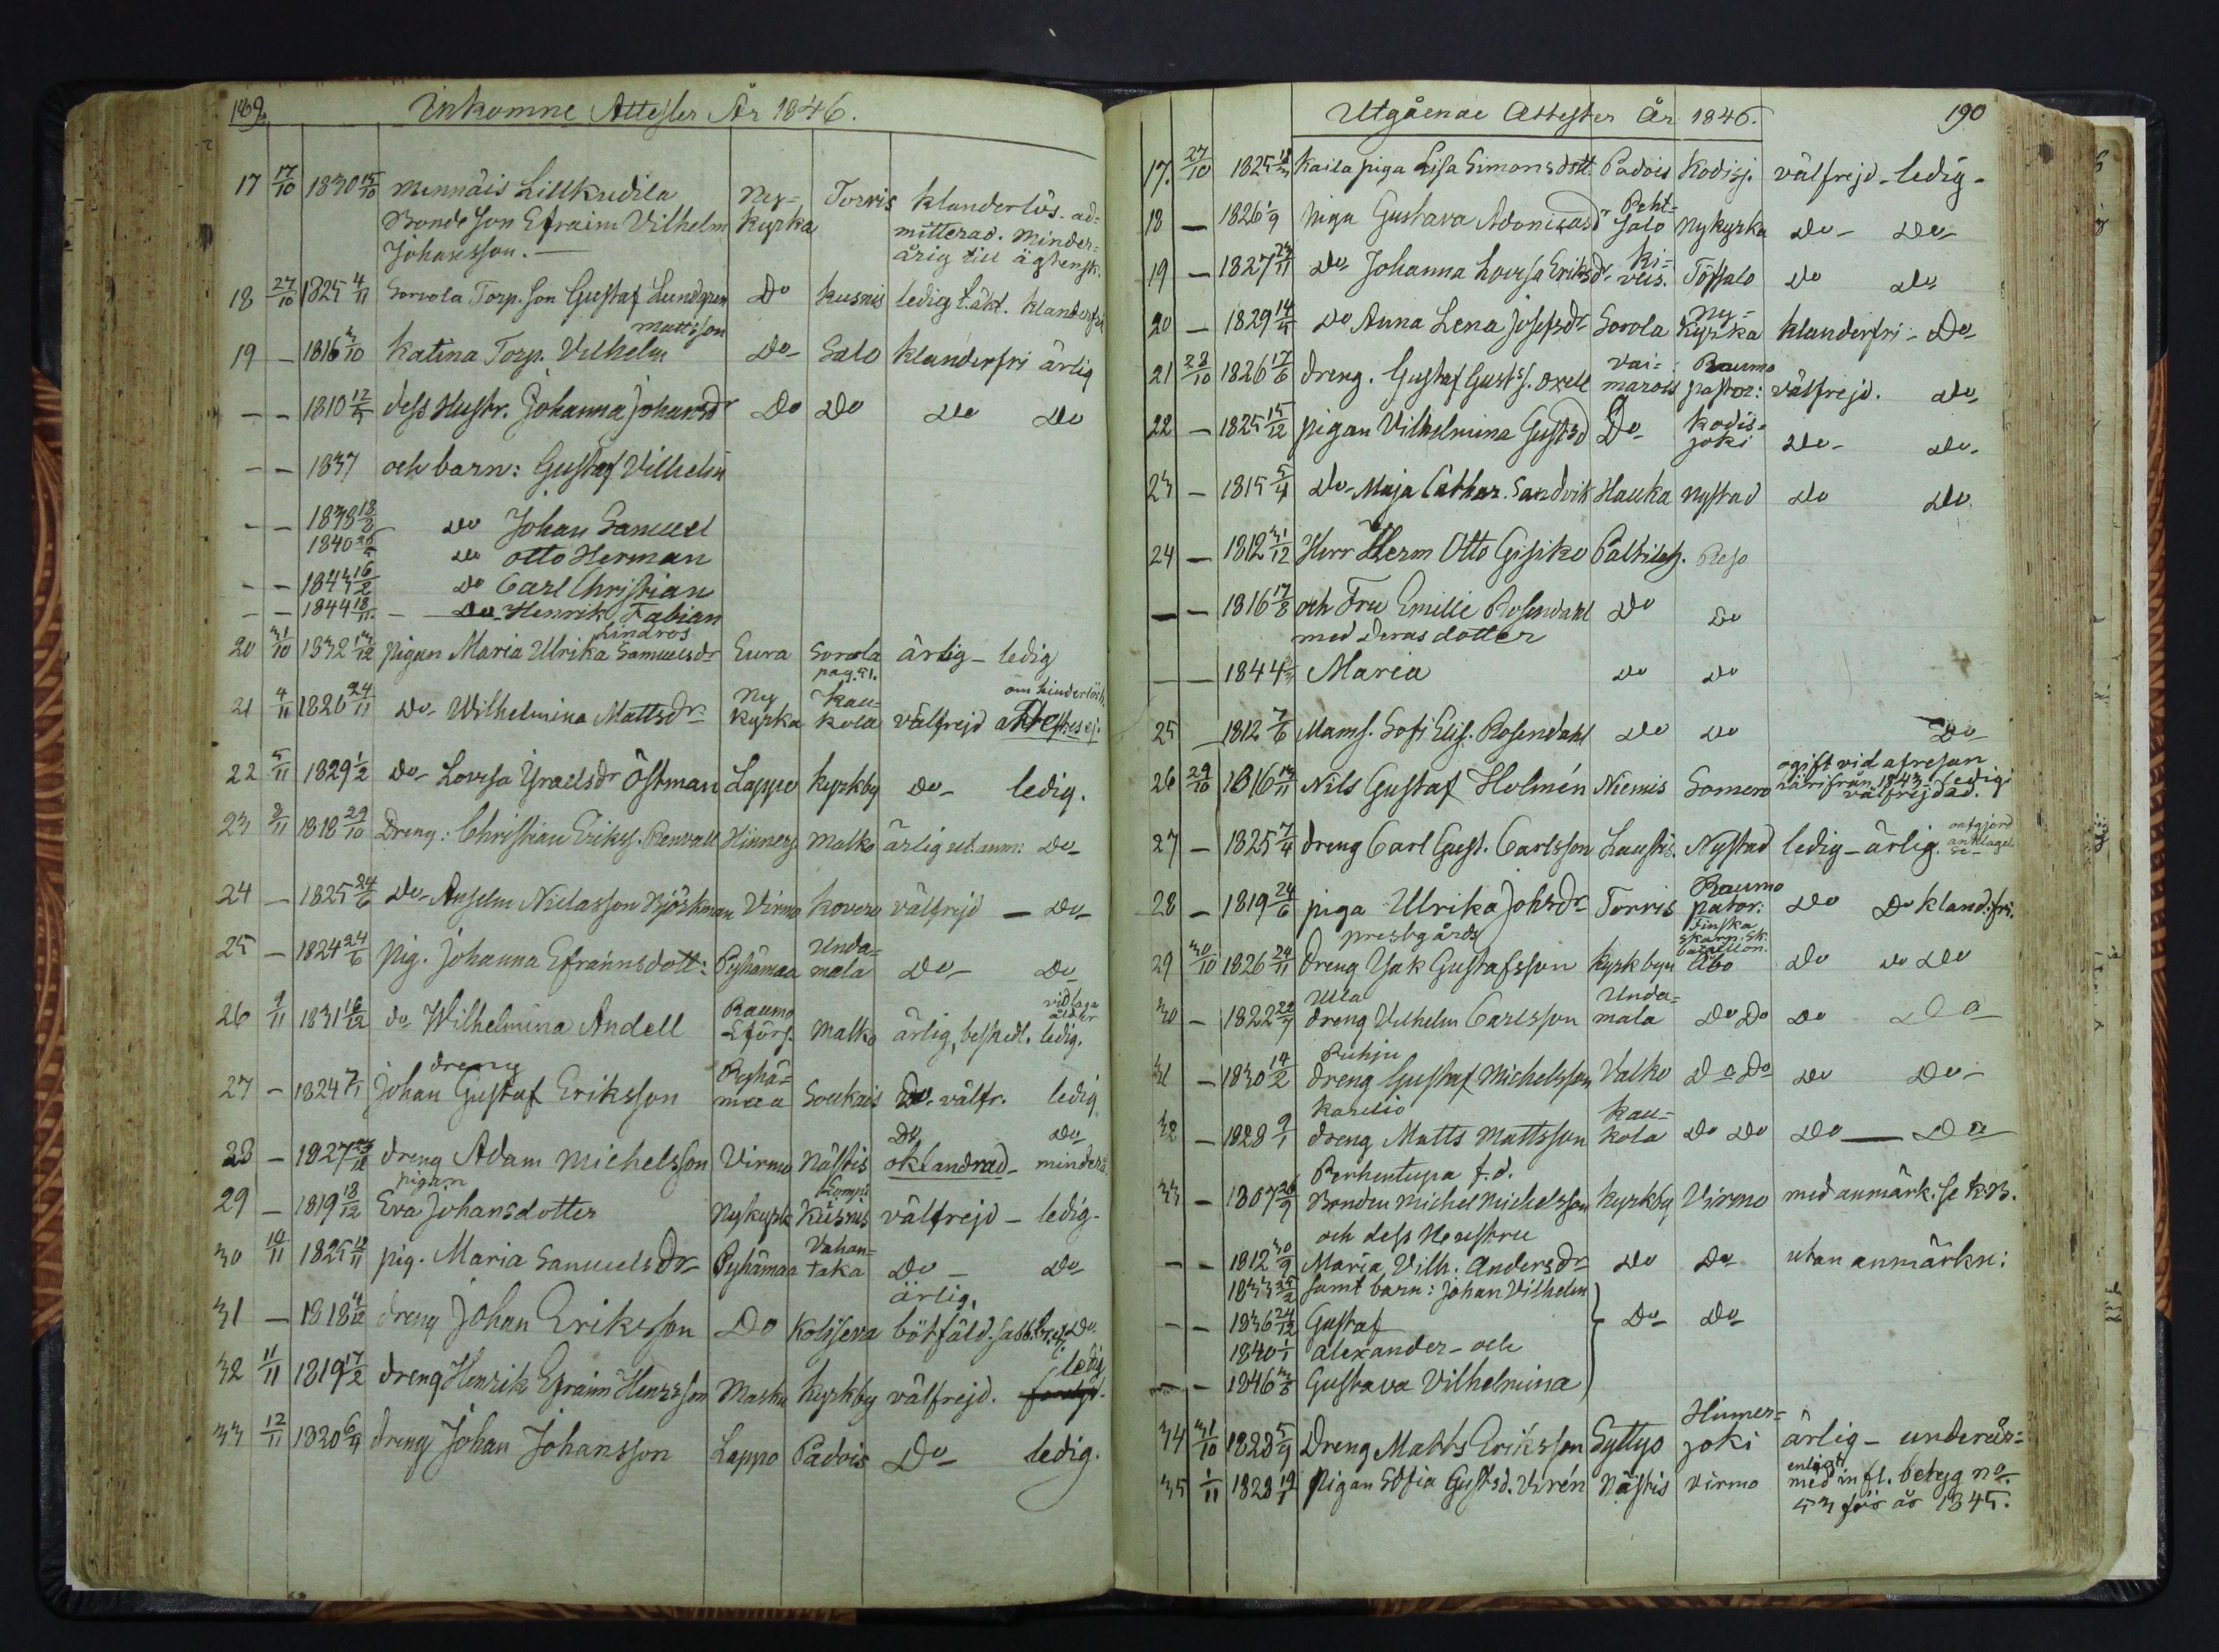 189.
Inkomne Attester År 1846.
17 17/10 1830 15/10 Mennäis Lillkudila Ny- Torris klanderlös. ad-
Bonde Son Efraim Vilhelm kyrka mitterad. Minder-
Johansson. — årig till ägtensk.
18 27/10 1825 4/11 Sorvola Torp. Son Gustaf Lundgren Do Kusnis ledig t. äkt. klanderfri
Mattsson
19 — 1816 3/10 Katina Torp. Vilhelm Do- Salo klanderfri ärlig
— — 1810 12/5 dess Hustr. Johanna Johansdr Do Do Do Do
— — 1837 och barn: Gustaf Vilhelm
— — 1838 18/2 Do Johan Samuel
1840 Do Otto Herman
— — 1843 16/2 Do Carl Christian
— — 1844 18/11 — Do Henrik Fabian
Lindros
20 31/10 1832 13/12 pigan Maria Ulrika Samuelsdr Eura Sorola ärlig — ledig
pag. 51.
om hinderlösh.
21 4/11 1826 24/11 Do- Wilhelmina Mattsdr Ny kyrka Kau- kola välfrejd attestes ej.
22 5/11 1829 1/2 Do- Lovisa Ysraelsdr Östman Lappo kyrkby Do- ledig.
23 8/11 1818 29/10 Dreng: Christian Eriks. Renvall Hinnerj. Malko ärlig ut. anm: Do-
24 — 1825 24/6 Do- Anselm Niclasson Björkman Virmo Kovero välfrejd — Do-
25 — 1824 24/6 pig. Johanna Efraimsdott: Pyhämaa Unda- mala Do- Do
26 9/11 1831 18/12 do Wilhelmina Andell Raumo Sförs. Malko ärlig, beskedl. ledig.
vid laga ålder
dreng
27 — 1824 7/1 Johan Gustaf Eriksson Pyhä- maa Soukais Do. välfr. ledig
Do Do
28 — 1827 dreng Adam Michelsson Virmo Nästis oklandrad — minderå
pigan
29 — 1819 18/12 Eva Johansdotter Nykyrk Kusnis välfrejd — ledig.
30 10/11 1825 18/11 pig. Maria Samuelsdr Pyhämaa Vahan- taka Do — Do
ärlig,
31 — 1818 4/12 dreng Johan Eriksson Do Kolisera bötfäld. sabb. br. ej. Do.
ledig
32 11/11 1819 17/2 dreng Henrik Efraim Henrsson Masku kyrkby välfrejd.
33 12/11 1820 6/9 dreng Johan Johansson Lappo Padois Do- ledig.
Utgående Attester År 1846.
190
17. 27/10 1825 Kaila piga Lisa Simonsdott. Padois Kodisj. välfrejd — ledig —
18 — 1826 1/9 piga Gustava Adonisasdr Peht- Salo Nykyrka Do — Do-
19 — 1827 23/11 Do Johanna Lovisa Eriksdr Ki- veis. Töfsalo Do Do
20 — 1829 14/4 Do Anna Lena Josefsdr Sorola Ny- kyrka klanderfri — Do-
21 28/10 1826 17/6 dreng. Gustaf Gusts. Oxell Vai- marois Raumo pastor: välfrejd. Do
22 — 1825 15/12 pigan Vilhelmina Gustsd Do- Kodis- joki Do- Do-
23 — 1815 5/4 Do- Maja Cathar. Sandvik Hauka Nystad Do Do.
24 — 1812 31/12 Herr Herm Otto Gisiko Palkilaj. Reso
— — 1816 17/8 och Fru Emilie Rosendahl Do Do
med deras dotter
— — 1844 Maria Do Do
25 — 1812 7/6 Mams. Sofi Elis. Rosendahl Do Do Do
26 29/10 1816 13/11 Nils Gustaf Holmén Niemis Somero ogift vid afresan
härifrån 1843 ledig
välfrejdad.
27 — 1825 7/4 dreng Carl Gust. Carlsson Laustis. Nystad ledig — ärlig.
28 — 1819 24/6 piga Ulrika Johsdr Torris Raumo pator: Do Do kland:fri.
prestgårds Finska Skarp. Sk. bataillon.
29 30/10 1826 24/11 dreng Isak Gustafsson kyrkbyn Åbo Do Do Do
Ulla Unda-
30 — 1822 dreng Vilhelm Carlsson mala Do Do Do Do
Puhju
31 — 1830 14/2 dreng Gustaf Michelsson Valko Do Do Do Do-
Karelio Kau-
32 — 1828 9/1 dreng Matts Mattsson kola Do Do Do — Do
Perhentupa f.d.
33 — 1807 26/9 Bonden Michel Michelsson kyrkby Virmo med anmärk. se k.B.
och dess Heustru
— — 1812 30/9 Maria Vilh. Andersdr Do Do utan anmärkn:
1833 25/2 samt barn: Johan Vilhelm
— — 1836 24/12 Gustaf Do- Do
1840 1/1 Alexander — och
— — 1846 3/8 Gustava Vilhelmina
34 31/10 1828 5/9 Dreng Matts Eriksson Syttyo Hinner- joki ärlig — underår-
enligt
35 1/11 1828 19/1 Pigan Sofia Gustsd. Virén Nästis Virmo med infl. betyg No.
53 för år 1845.